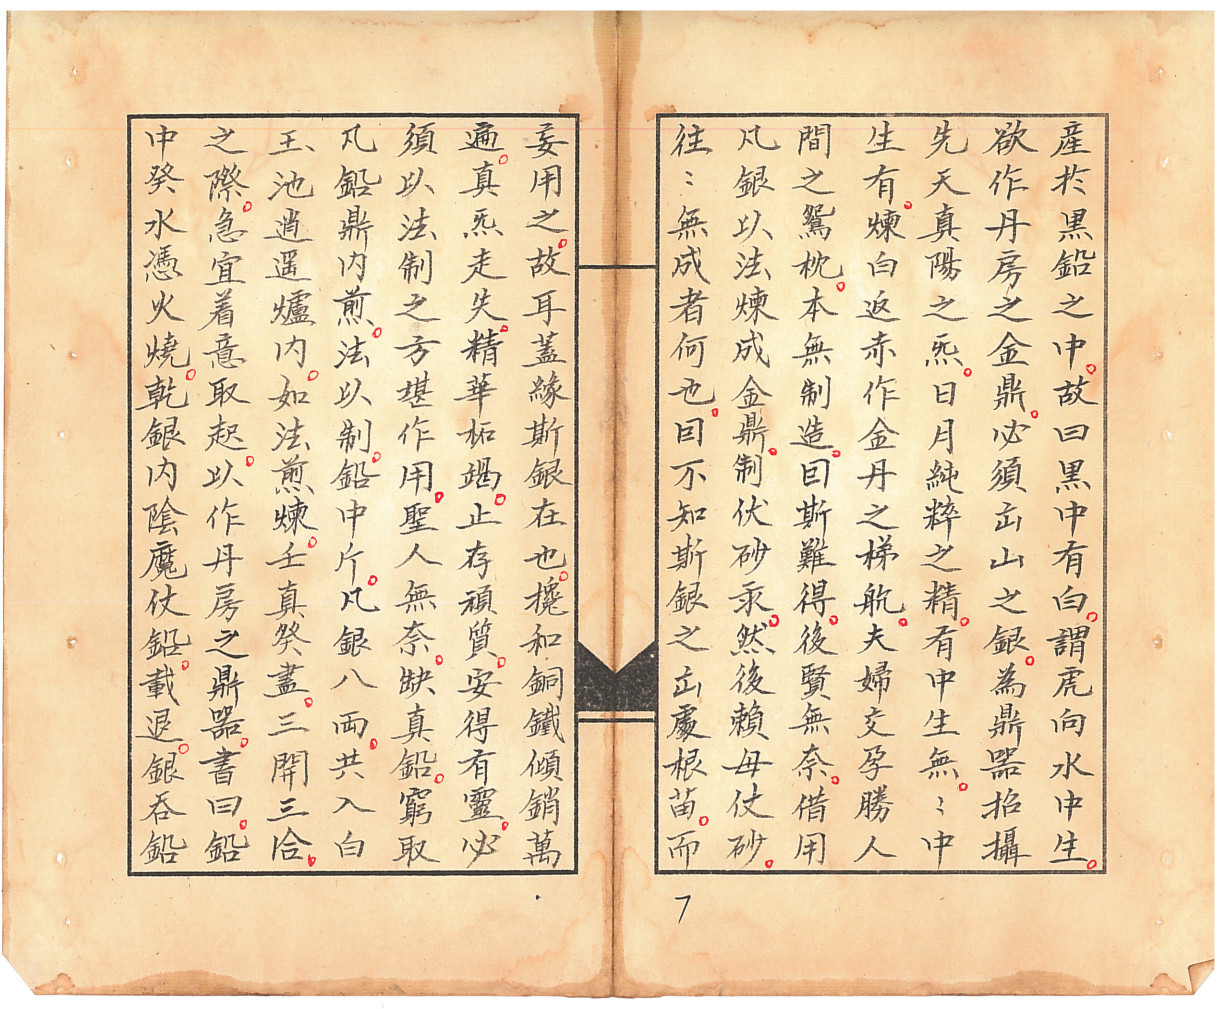 産於黒鉛之中。故曰黒中有白。謂虎向水中生。
欲作丹房之金鼎。必須出山之銀。為鼎器招攝
先天真陽之炁。日月純粹之精。有中生無。〻中
生有。煉白返赤作金丹之梯航。夫婦交孕勝人
間之鴛枕。本無制造。因斯難得。後賢無奈。借用
凡銀以法煉成金鼎。制伏砂汞。然後賴母仗砂。
往〻無成者何也。因不知斯銀之出處根苗。而
妄用之。故耳蓋緣斯銀在也。攙和銅鐵傾銷萬
遍。真炁走失。精華柘竭。止存頑質。安得有靈。必
須以法制之方堪作用。聖人無奈。缺真鉛。窮取
凡鉛鼎內煎。法以制。鉛中片。凡銀八両。共入白
玉池逍遥爐内。如法煎煉。壬真癸盡。三開三洽。
之際。急宜着意取起。以作丹房之鼎器。書曰。鉛
中癸水憑火燒。乾銀内陰魔仗鉛。載退。銀吞鉛
7